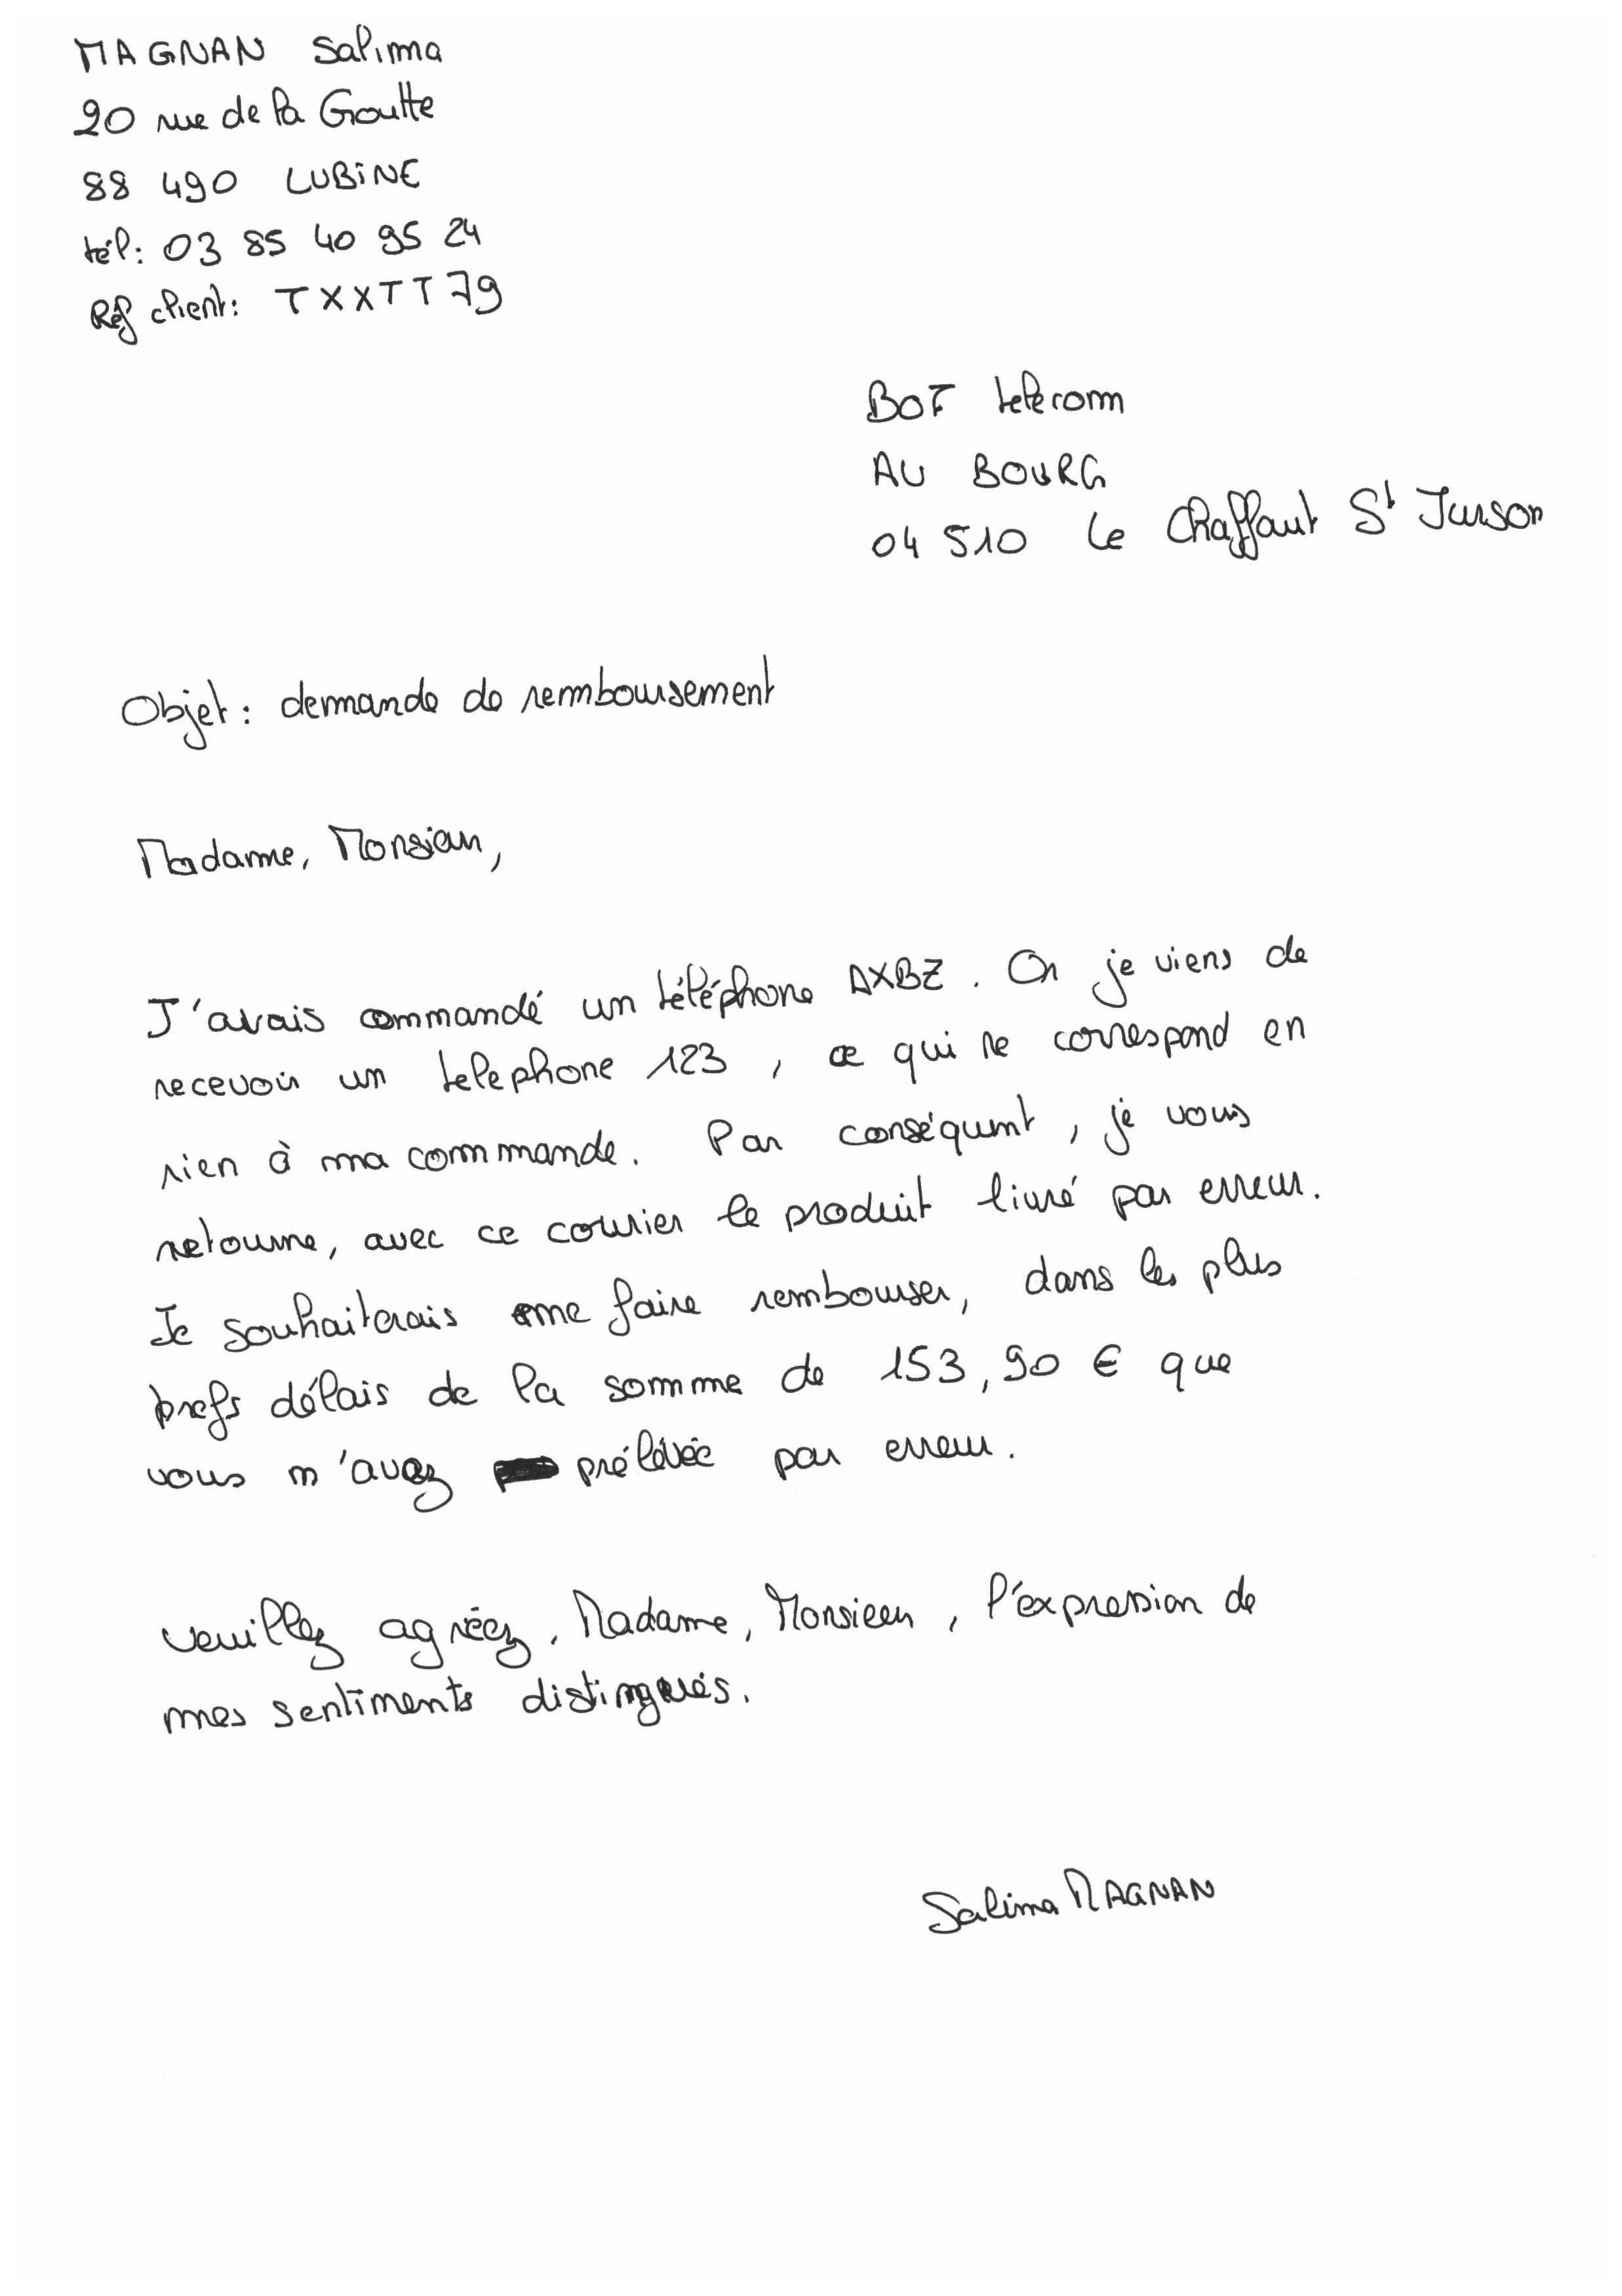 MAGNAN Salima
20 rue de la Goutte
88 490 LUBiNE
tél: 03 85 40 95 24
Réf client: TXXTT79
BOF telecom
AU BOURG
04 510 Le Chaffaut St Jurson
Objet: demande de remboursement
Madame, Monsieur,
J'avais commandé un téléphone AXBZ. Or je viens de
recevoir un telephone 123, ce qui ne correspond en
rien à ma commande. Par conséquent, je vous
retourne, avec ce courier le produit livré par erreur.
Je souhaiterais me faire rembourser, dans les plus
brefs délais de la somme de 153,90 € que
vous m'avez prélévée par erreur.
Veuillez agréez, Madame, Monsieur, l'expression de
mes sentiments distingués.
Salima MAGNAN